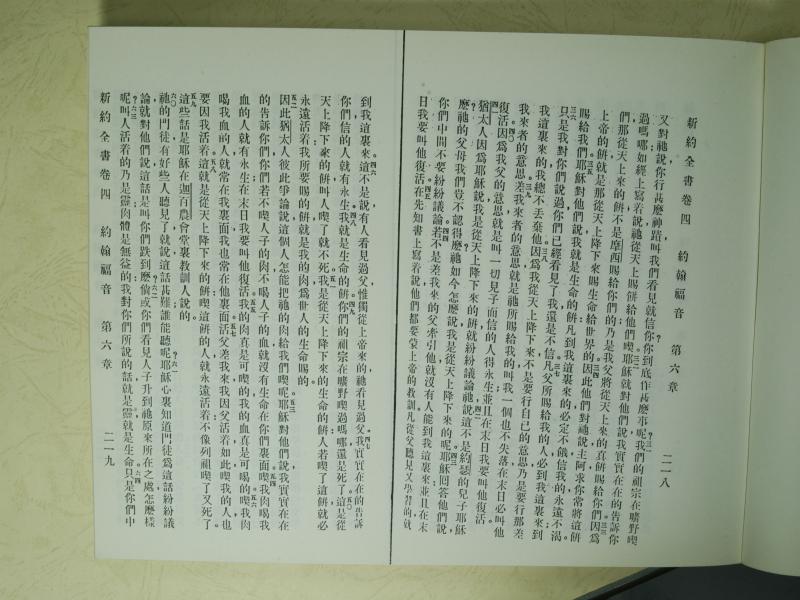 新約全書卷四 約翰福音 第六章 二一八
又對祂說你行甚麼神蹟叫我們看見就信你你到底作甚麼事呢我們的祖宗在曠野喫
過嗎哪如經上寫着說祂從天上賜餅給他們喫耶穌就對他們說我實實在在的告訴你
們那從天上來的餅不是摩西賜給你們的乃是我父將從天上來的真餅賜給你們因爲
上帝的餅就是那從天上降下來賜生命給世界的因此他們對祂說主阿求你常將這餅
賜給我們耶穌對他們說我就是生命的餅凡到我這裏來的必定不餓信我的永遠不渴
只是我對你們說過你們已經看見了我還是不信凡父所賜給我的人必到我這裏來到
我這裏來的我總不丟棄他因爲我從天上降下來不是要行自己的意思乃是要行那差
我來者的意思差我來者的意思就是祂所賜給我的叫我一個也不失落在末日必叫他
復活因爲我父的意思就是叫一切見子而信的人得永生並且在末日我要叫他復活
猶太人因爲耶穌說我是從天上降下來的餅就紛紛議論祂說這不是約瑟的兒子耶穌
麼祂的父母我們豈不認得麼祂如今怎麼說我是從天上降下來的呢耶穌回答他們說
你們中間不要紛紛議論若不是差我來的父牽引他就沒有人能到我這裏來並且在末
日我要叫他復活在先知書上寫着說他們都要蒙上帝的教訓凡從父聽見又學習的就
到我這裏來這不是說有人看見過父惟獨從上帝來的祂看見過父我實實在在的告訴
你們信的人就有永生我就是生命的餅你們的祖宗在曠野喫過嗎哪還是死了這是從
天上降下來的餅叫人喫了就不死我是從天上降下來的生命的餅人若喫了這餅就必
永遠活着我所要賜的餅就是我的肉爲世人的生命賜的
因此猶太人彼此爭論說這個人怎能把祂的肉給我們喫呢耶穌對他們說我實實在在
的告訴你們你們若不喫人子的肉不喝人子的血就沒有生命在你們裏面喫我肉喝我
血的人就有永生在末日我要叫他復活我的肉真是可喫的我的血真是可喝的喫我肉
喝我血的人就常在我裏面我也常在他裏面活父差我來我因父活着如此喫我的人也
要因我活着這就是從天上降下來的餅喫這餅的人就永遠活着不像列祖喫了又死了
這些話是耶穌在迦百農會堂裏教訓人說的
祂的門徒有好些人聽見了就說這話甚難誰能聽呢耶穌心裏知道門徒爲這話紛紛議
論就對他們說這話是叫你們跌到麼倘或你們看見人子升到祂原來所在之處怎麼樣
呢叫人活着的乃是靈肉體是無益的我對你們所說的話就是靈就是生命只是你們中
新約全書卷四 約翰福音 第六章 二一九